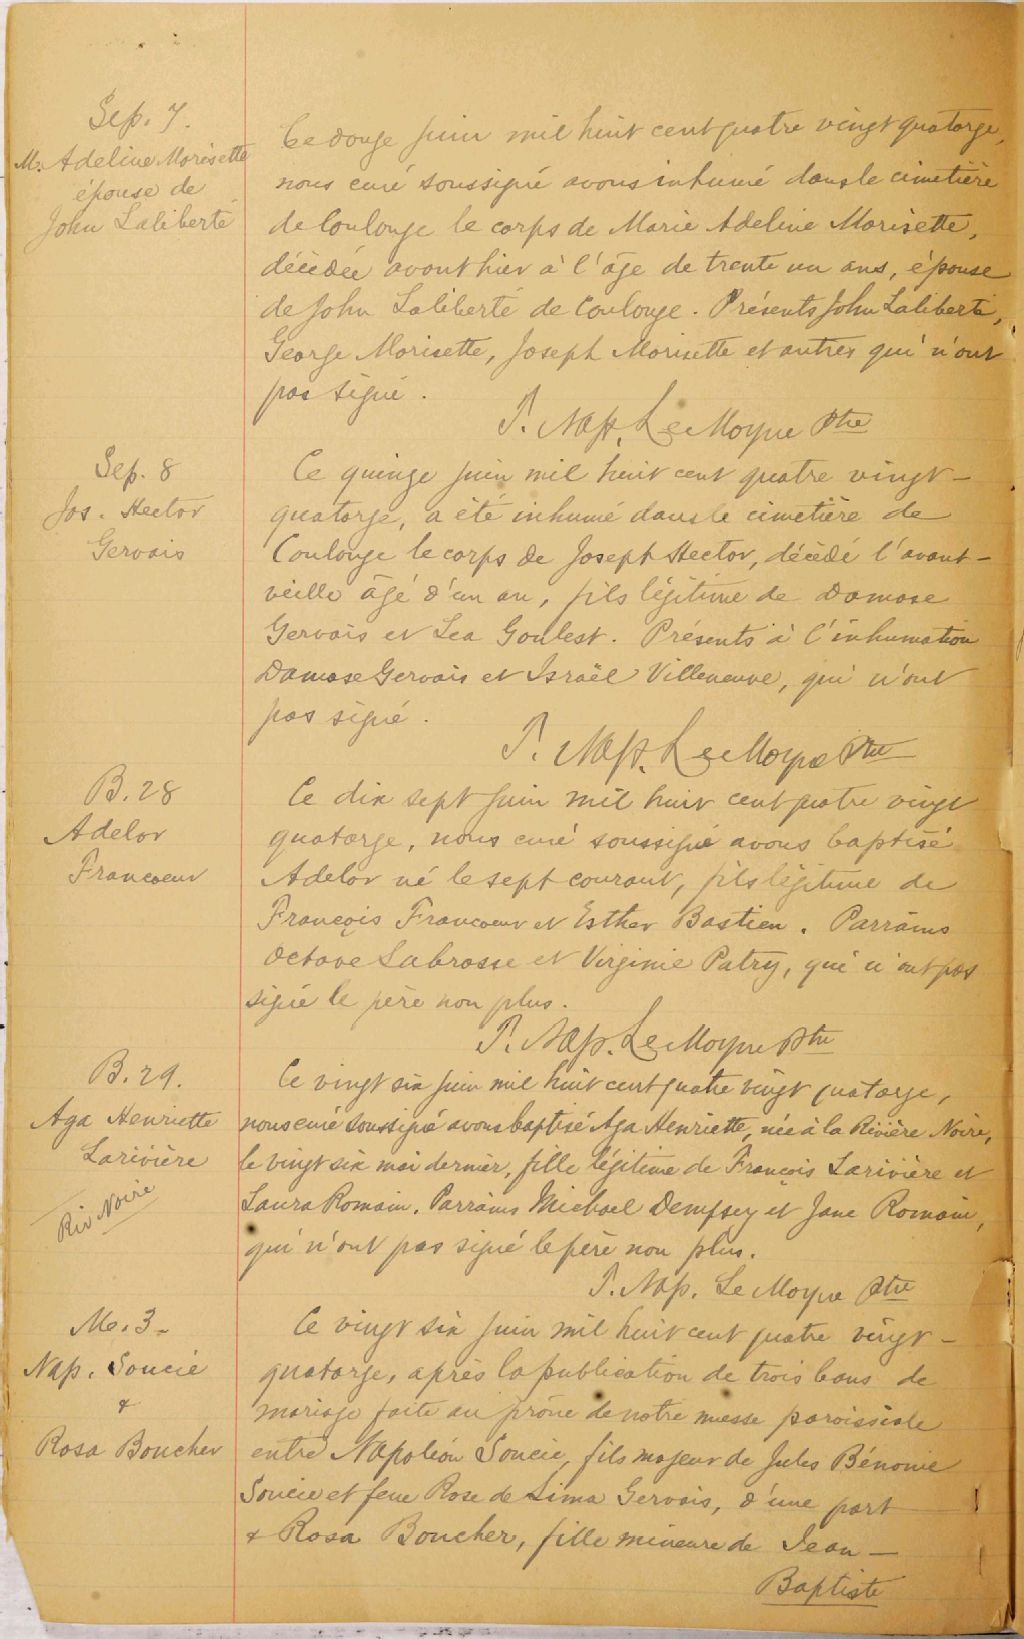 Sep. 7.
M. Adeline Morisette
épouse de
John Laliberté
Ce douze juin mil huit cent quatre vingt quatorze,
nous curé soussigné avons inhumé dans le cimetière
de Coulonge le corps de Marie Adeline Morisette,
décédée avant hier à l'âge de trente un ans, épouse
de John Laliberté de Coulonge. Présents John Laliberté,
George Morisette, Joseph Morisette et autres qui n'ont
pas signé.
P. Nap. LeMoyne Ptre
Sep. 8
Jos. Hector
Gervais
Ce quinze juin mil huit cent quatre vingt-
quatorze, a été inhumé dans le cimetière de
Coulonge le corps de Joseph Hector, décédé l'avant-
veille âgé d'un an, fils légitime de Damase
Gervais et Lea Goulest. Présents à l'inhumation
Damase Gervais et Israël Villeneuve, qui n'ont
pas signé.
P. Nap. LeMoyne Ptre
B. 28
Adelor
Francoeur
Ce dix sept juin mil huit cent quatre vingt
quatorze, nous curé soussigné avons baptisé
Adelor né le sept courant, fils légitime de
François Francoeur et Esther Bastien. Parrains
Octave Labrosse et Virginie Patry, qui n'ont pas
signé le père non plus.
P. Nap. LeMoyne Ptre
B. 29.
Aga Henriette
Larivière
Riv Noire
Ce vingt six juin mil huit cent quatre vingt quatorze,
nous curé soussigné avons baptisé Aga Henriette, née à la Rivière Noire,
le vingt six mai dernier, fille légitime de François Larivière et
Laura Romain. Parrains Michael Dempsey et Jane Romain,
qui n'ont pas signé le père non plus.
P. Nap. Le Moyne Ptre
M. 3-
Nap. Soucie
&
Rosa Boucher
Ce vingt six juin mil huit cent quatre vingt-
quatorze, après la publication de trois bans de
mariage faite au prône de notre messe paroissiale
entre Napoléon Soucie, fils majeur de Jules Bénonie
Soucie et feue Rose de Lima Gervais, d'une part
& Rosa Boucher, fille mineure de Jean-
Baptiste